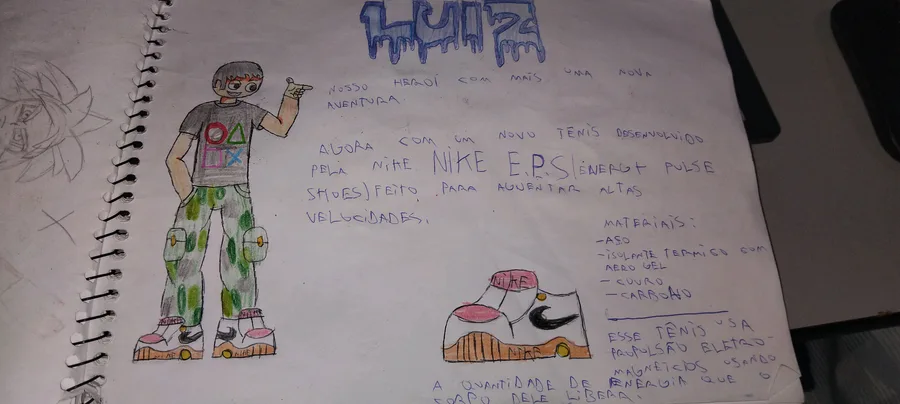 LUIZ
NOSSO HERÓI COM MAIS UMA NOVA
AVENTURA
AGORA COM UM NOVO TÊNIS DESENVOLVIDO
PELA NIKE NIKE E.P.S (ENERGY PULSE
SHOES) FEITO PARA AGUENTAR ALTAS
VELOCIDADES.
MATERIAIS:
-AÇO
-ISOLANTE TERMICO COM
AERO GEL
- COURO
- CARBONO
ESSE TÊNIS USA
PROPULSÃO ELETRO-
MAGNETICOS USANDO
A QUANTIDADE DE ENERGIA QUE O
CORPO DELE LIBERA.
NIKE
NIKE